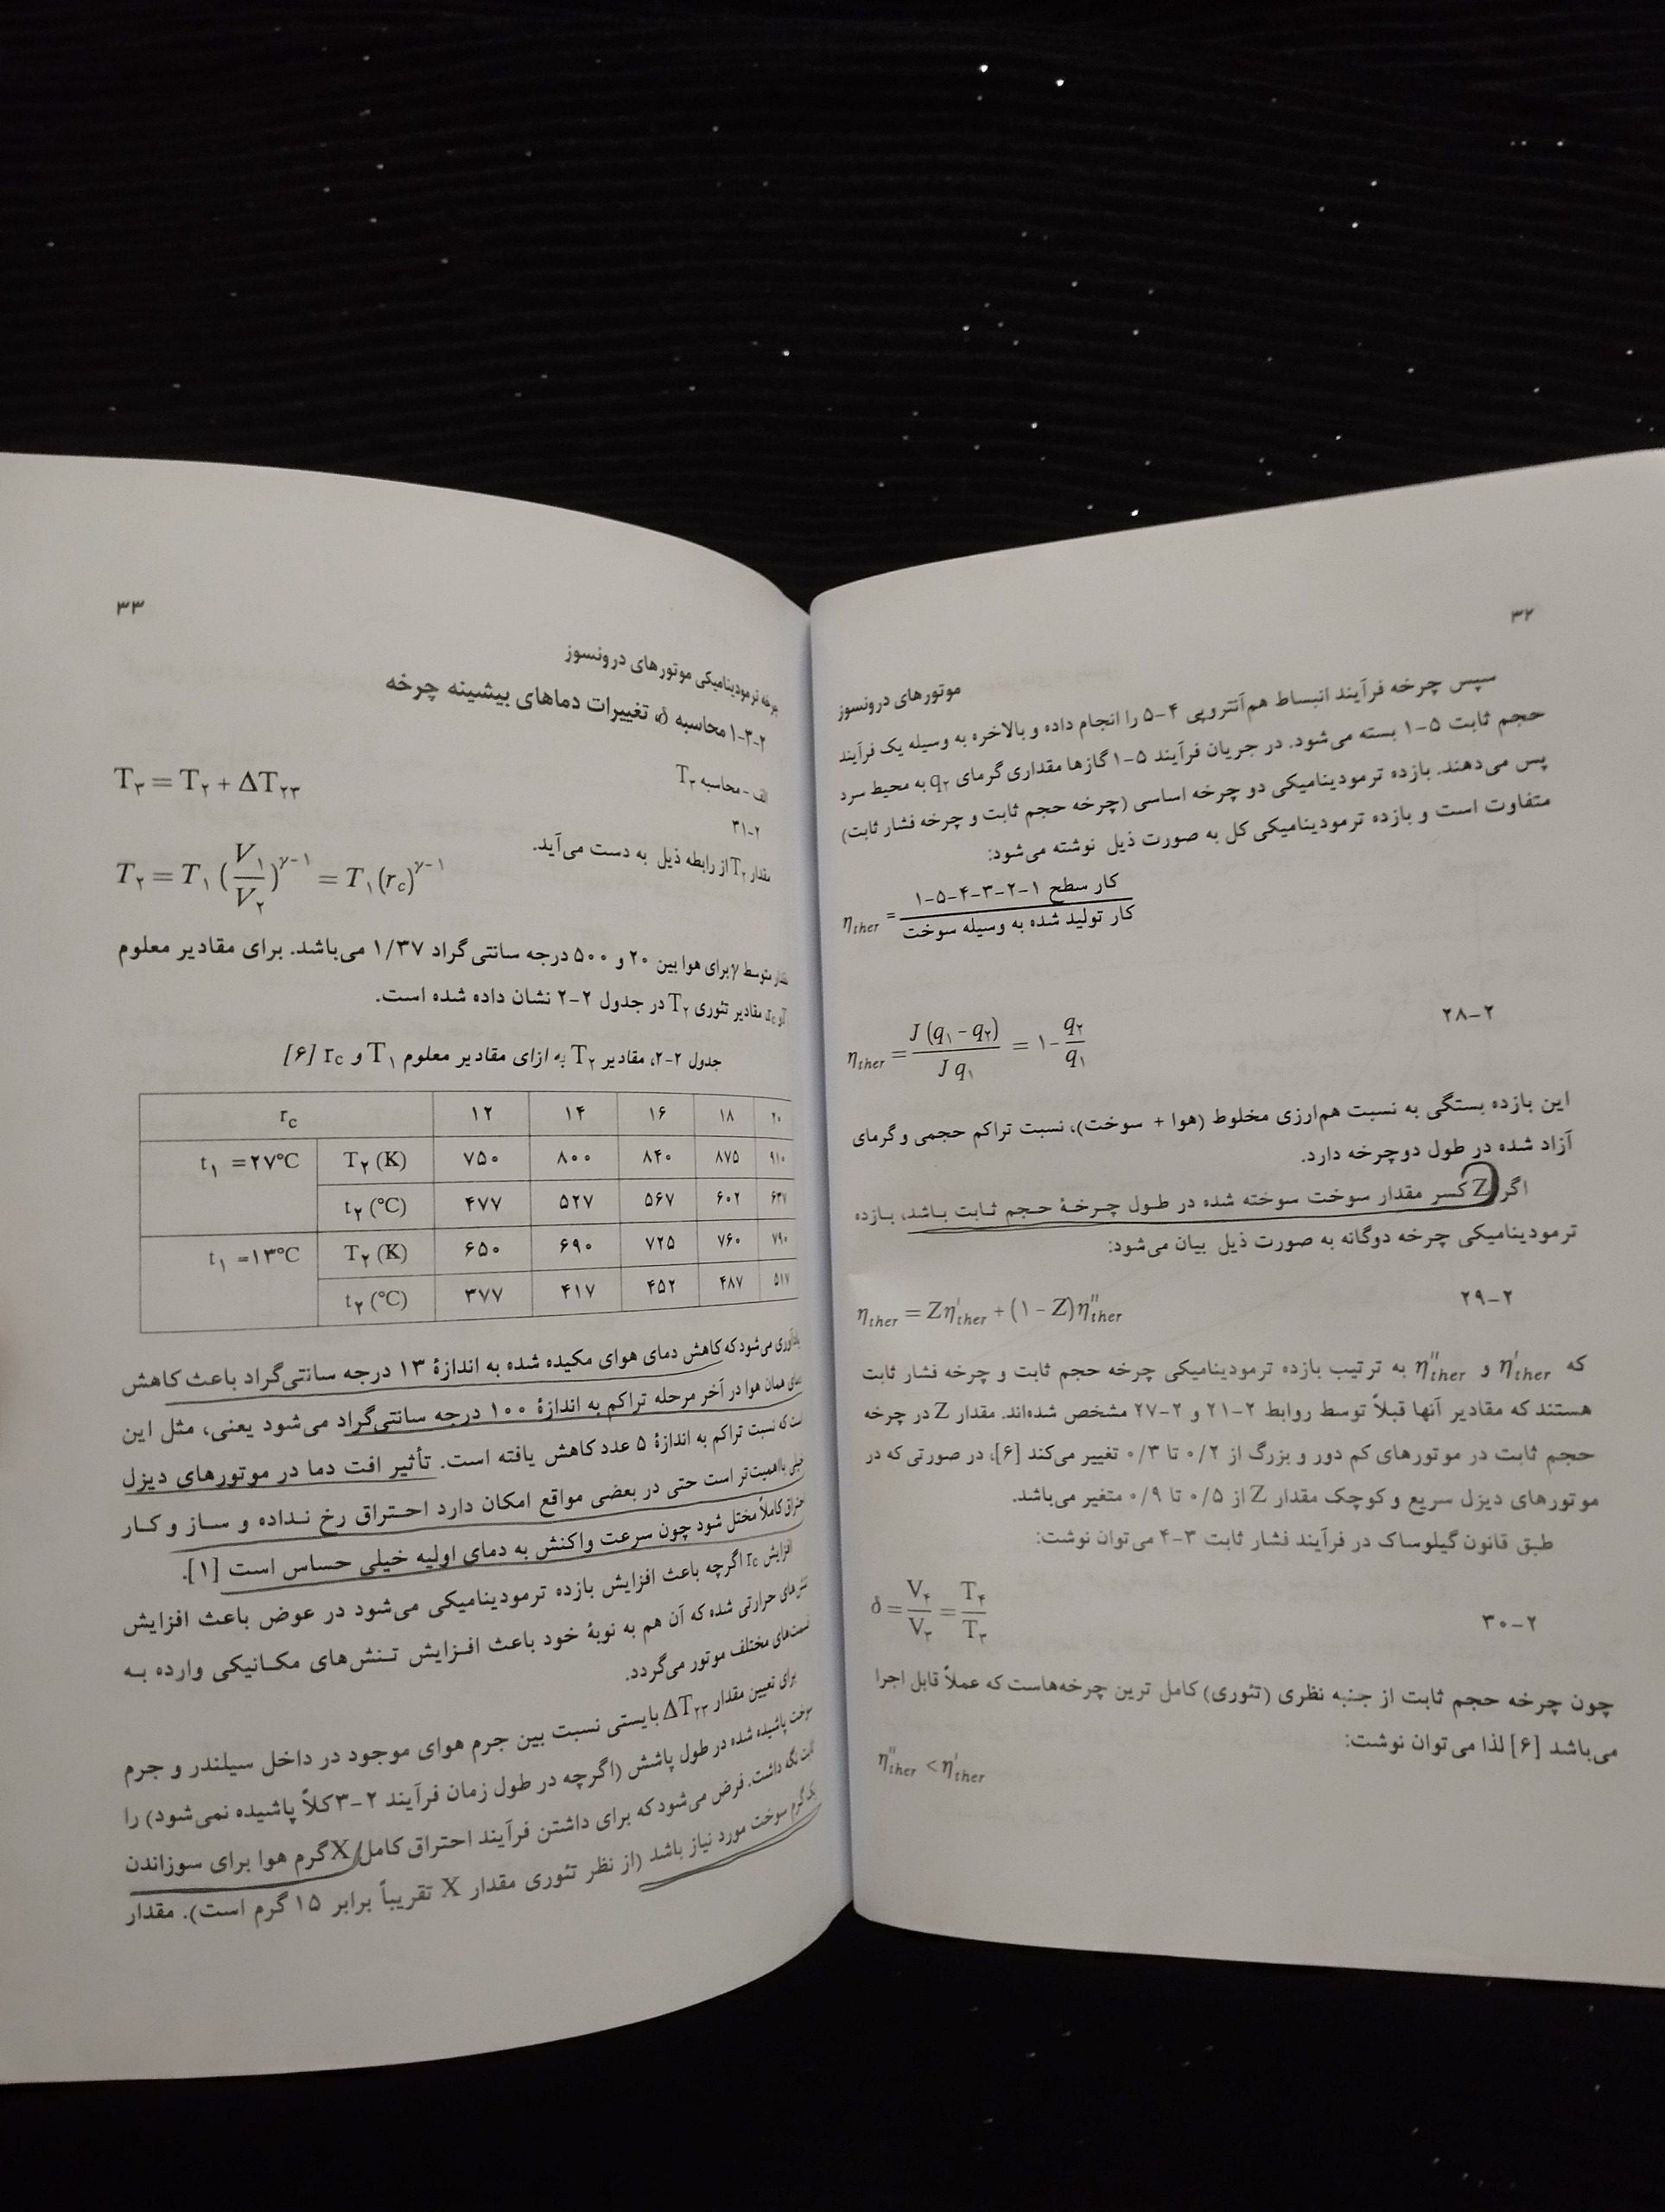 ۳۲
موتورهای درونسوز
سپس چرخه فرآیند انبساط هم‌آنتروپی ۴-۵ را انجام داده و بالاخره به وسیله یک فرآیند
حجم ثابت ۵-۱ بسته می‌شود. در جریان فرآیند ۵-۱ گازها مقداری گرمای q۲ به محیط سرد
پس می‌دهند. بازده ترمودینامیکی دو چرخه اساسی (چرخه حجم ثابت و چرخه فشار ثابت)
متفاوت است و بازده ترمودینامیکی کل به صورت ذیل نوشته می‌شود:
ηther = کار سطح ۱-۲-۳-۴-۵-۱ / کار تولید شده به وسیله سوخت
۲-۲۸
ηther = J (q۱ - q۲) / J q۱ = ۱ - q۲ / q۱
این بازده بستگی به نسبت هم‌ارزی مخلوط (هوا + سوخت)، نسبت تراکم حجمی و گرمای
آزاد شده در طول دوچرخه دارد.
اگر Z کسر مقدار سوخت سوخته شده در طول چرخهٔ حجم ثابت باشد، بازده
ترمودینامیکی چرخه دوگانه به صورت ذیل بیان می‌شود:
۲-۲۹
ηther = Zη'ther + (۱ - Z)η''ther
که η'ther و η''ther به ترتیب بازده ترمودینامیکی چرخه حجم ثابت و چرخه فشار ثابت
هستند که مقادیر آنها قبلاً توسط روابط ۲-۲۱ و ۲-۲۷ مشخص شده‌اند. مقدار Z در چرخه
حجم ثابت در موتورهای کم دور و بزرگ از ۰/۲ تا ۰/۳ تغییر می‌کند [۶]، در صورتی که در
موتورهای دیزل سریع و کوچک مقدار Z از ۰/۵ تا ۰/۹ متغیر می‌باشد.
طبق قانون گیلوساک در فرآیند فشار ثابت ۳-۴ می‌توان نوشت:
۲-۳۰
δ = V۴ / V۳ = T۴ / T۳
چون چرخه حجم ثابت از جنبه نظری (تئوری) کامل ترین چرخه‌هاست که عملاً قابل اجرا
می‌باشد [۶] لذا می‌توان نوشت:
η''ther < η'ther
۳۳
چرخه ترمودینامیکی موتورهای درونسوز
۲-۳-۱ محاسبه δ، تغییرات دماهای بیشینه چرخه
الف - محاسبه T۳
۲-۳۱
T۳ = T۲ + ΔT۲۳
مقدار T۲ از رابطه ذیل به دست می‌آید.
T۲ = T۱ (V۱ / V۲)^γ-۱ = T۱ (rc)^γ-۱
مقدار متوسط γ برای هوا بین ۲۰ و ۵۰۰ درجه سانتی گراد ۱/۳۷ می‌باشد. برای مقادیر معلوم
rc مقادیر تئوری T۲ در جدول ۲-۲ نشان داده شده است.
جدول ۲-۲، مقادیر T۲ به ازای مقادیر معلوم T۱ و rc [۶]
rc ۱۲ ۱۴ ۱۶ ۱۸ ۲۰
t۱ = ۲۷°C T۲ (K) ۷۵۰ ۸۰۰ ۸۴۰ ۸۷۵ ۹۱۰
t۲ (°C) ۴۷۷ ۵۲۷ ۵۶۷ ۶۰۲ ۶۳۷
t۱ = ۱۳°C T۲ (K) ۶۵۰ ۶۹۰ ۷۲۵ ۷۶۰ ۷۹۰
t۲ (°C) ۳۷۷ ۴۱۷ ۴۵۲ ۴۸۷ ۵۱۷
یادآوری می‌شود که کاهش دمای هوای مکیده شده به اندازهٔ ۱۳ درجه سانتی‌گراد باعث کاهش
دمای همان هوا در آخر مرحله تراکم به اندازهٔ ۱۰۰ درجه سانتی‌گراد می‌شود یعنی، مثل این
است که نسبت تراکم به اندازهٔ ۵ عدد کاهش یافته است. تأثیر افت دما در موتورهای دیزل
خیلی بااهمیت‌تر است حتی در بعضی مواقع امکان دارد احتراق رخ نداده و ساز و کار
احتراق کاملاً مختل شود چون سرعت واکنش به دمای اولیه خیلی حساس است [۱].
افزایش rc اگرچه باعث افزایش بازده ترمودینامیکی می‌شود در عوض باعث افزایش
تنش‌های حرارتی شده که آن هم به نوبهٔ خود باعث افزایش تنش‌های مکانیکی وارده به
قسمت‌های مختلف موتور می‌گردد.
برای تعیین مقدار ΔT۲۳ بایستی نسبت بین جرم هوای موجود در داخل سیلندر و جرم
سوخت پاشیده شده در طول پاشش (اگرچه در طول زمان فرآیند ۲-۳ کلاً پاشیده نمی‌شود) را
ثابت نگه داشت. فرض می‌شود که برای داشتن فرآیند احتراق کامل X گرم هوا برای سوزاندن
یک گرم سوخت مورد نیاز باشد (از نظر تئوری مقدار X تقریباً برابر ۱۵ گرم است). مقدار